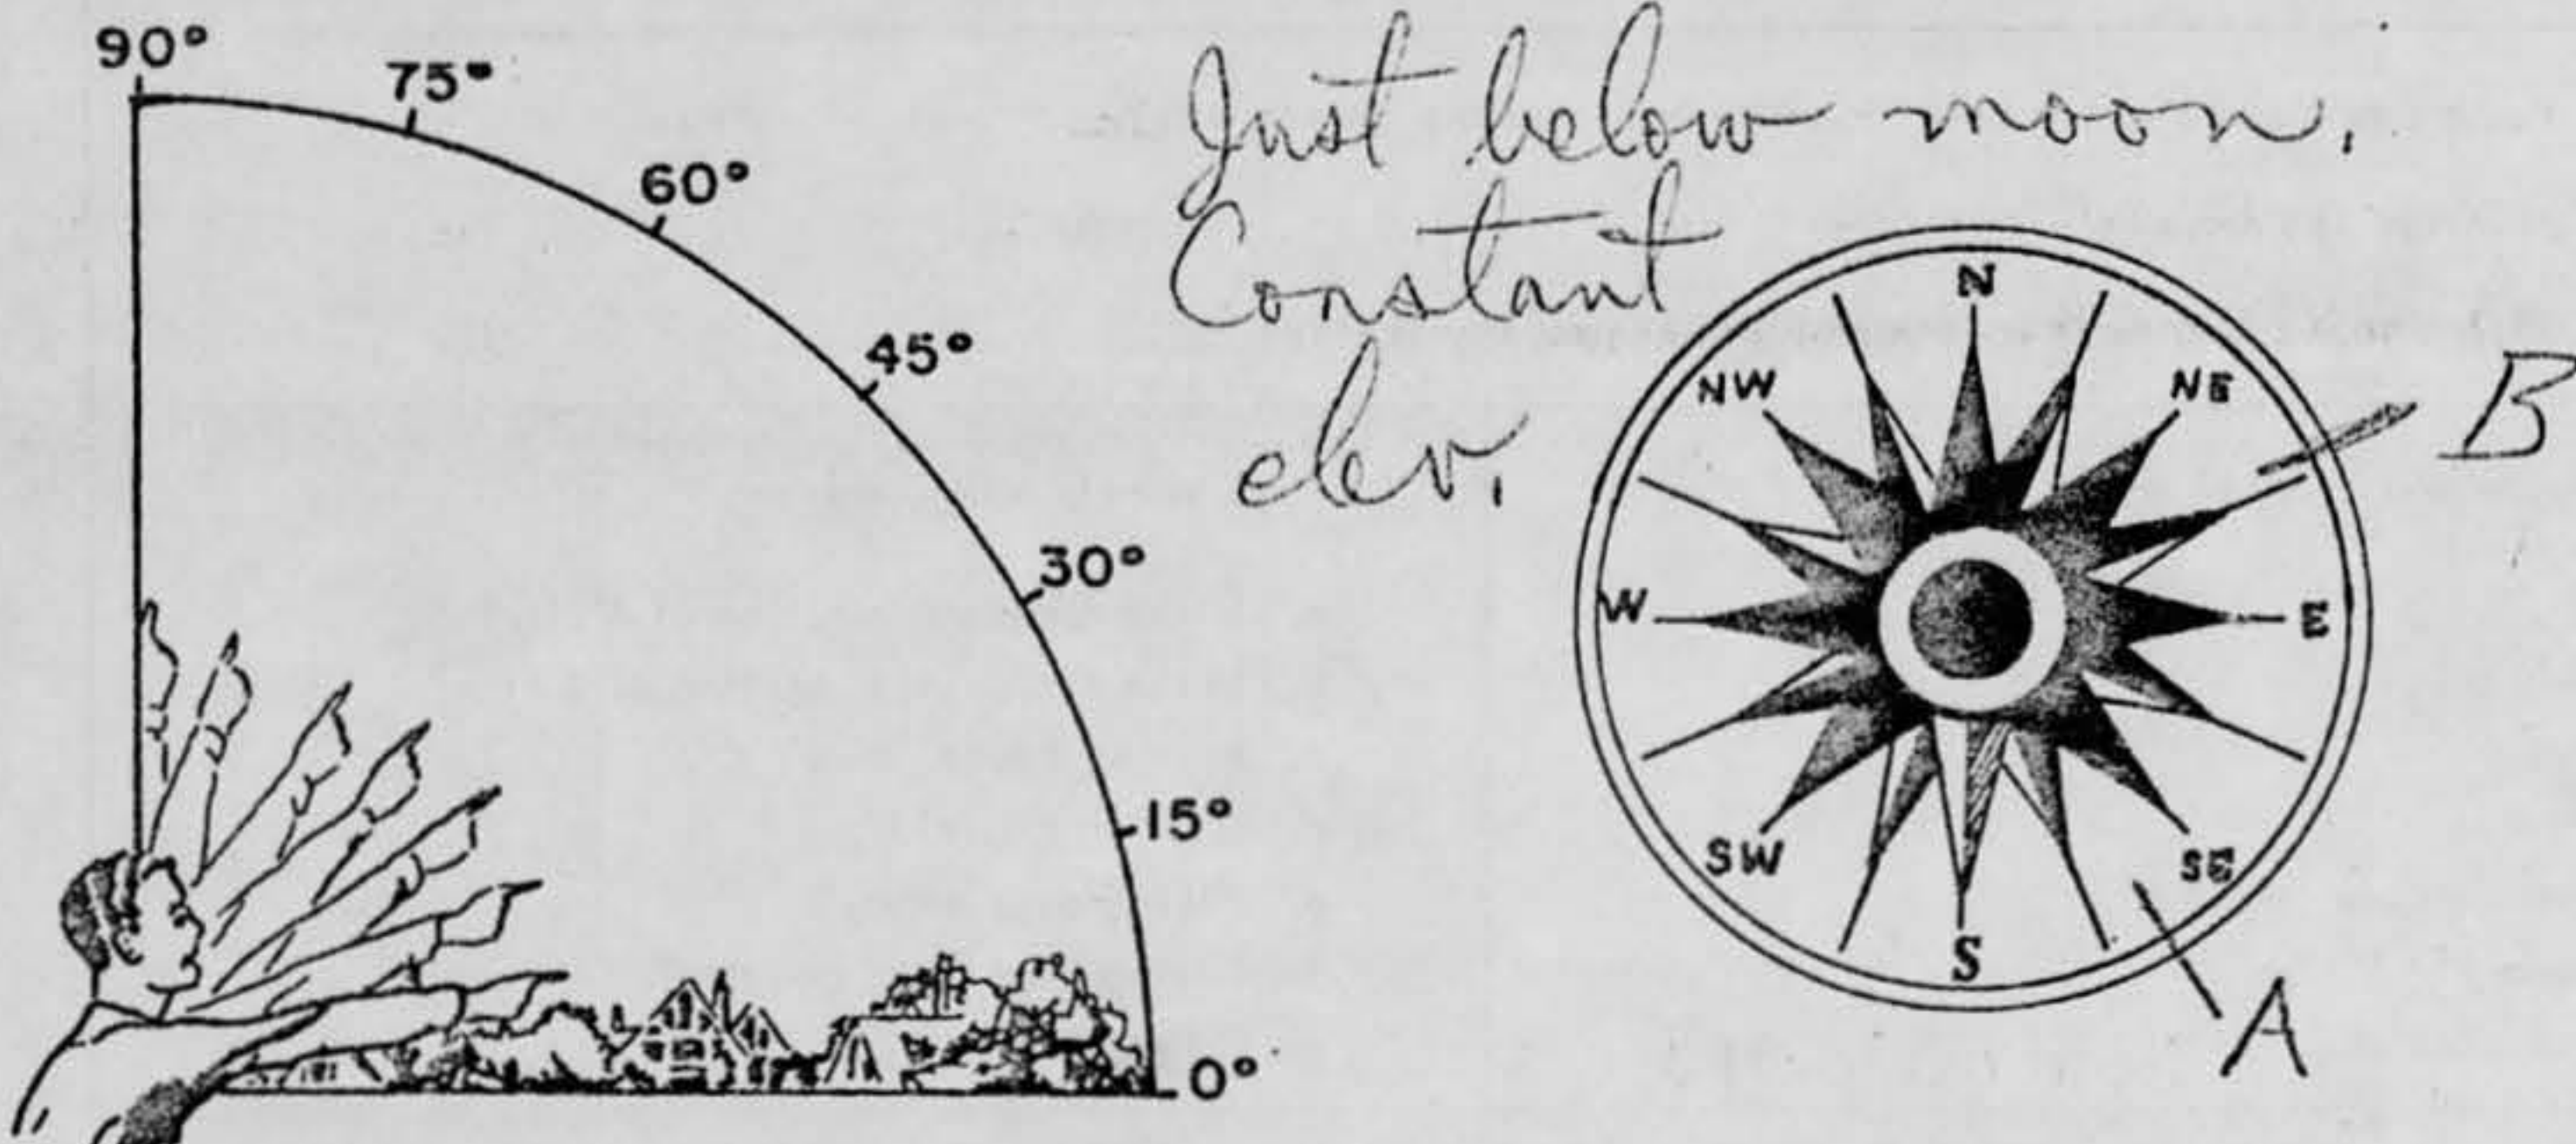 90°
75°
60°
45°
30°
15°
0°
Just below moon.
Constant
elev.
N
NE
E
SE
S
SW
W
NW
B
A